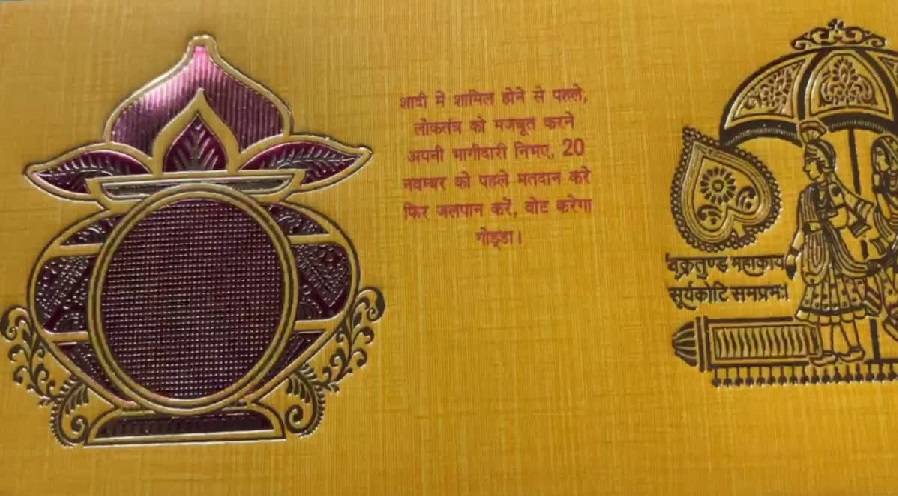 शादी में शामिल होने से पहले,
लोकतंत्र को मजबूत करने
अपनी भागीदारी निभाए, 20
नवम्बर को पहले मतदान करे
फिर जलपान करें, वोट करेगा
गोड्डा।
वक्रतुण्ड महाकाय
सूर्यकोटि समप्रभः।